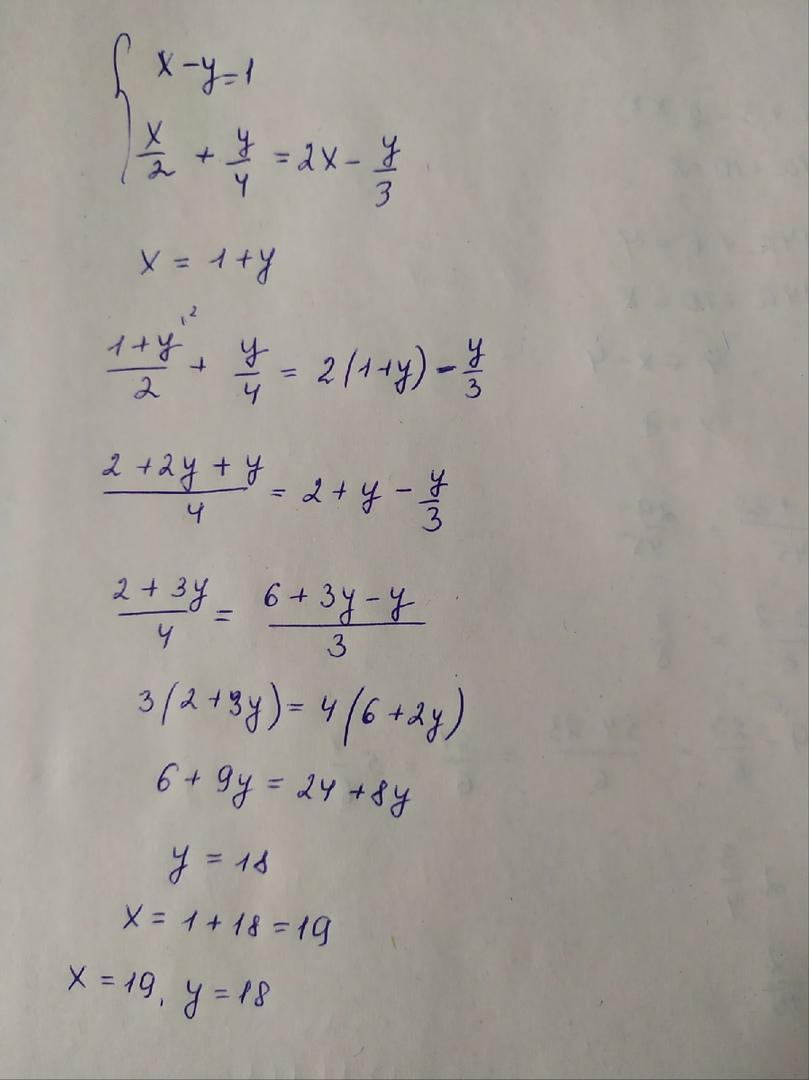 { x - y = 1
x/2 + y/4 = 2x - y/3
x = 1 + y
(1+y)/2 ^{,2} + y/4 = 2(1+y) - y/3
(2 + 2y + y)/4 = 2 + y - y/3
(2 + 3y)/4 = (6 + 3y - y)/3
3(2 + 3y) = 4(6 + 2y)
6 + 9y = 24 + 8y
y = 18
x = 1 + 18 = 19
x = 19, y = 18